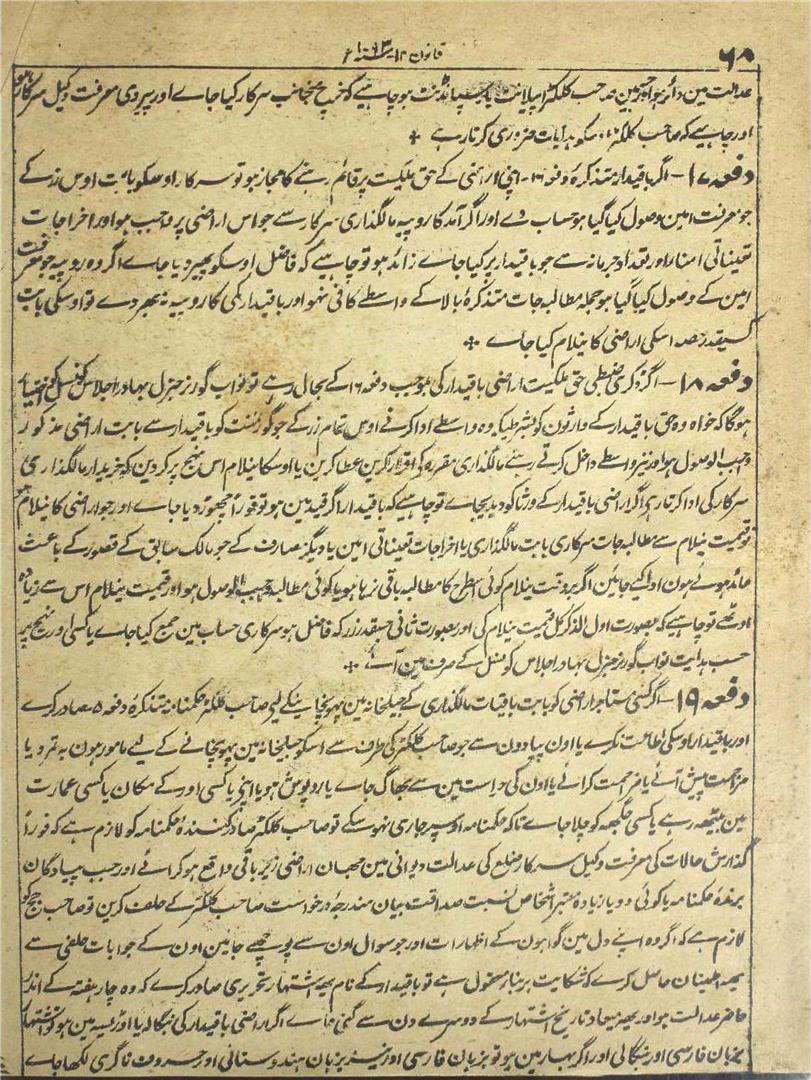 قانون ۱۴ سنہ ۱۷۹۳ء
۶۸
عدالت مین دائر ہو اور جسمین صاحب کلکٹر اپیلانٹ یا رسپانڈنٹ ہو چاہیے کہ خرچ منجانب سرکار کیا جاے اور پیروی معرفت وکیل سرکار ہو
اور چاہیے کہ صاحب کلکٹر اسکو ہدایات ضروری کرتا رہے
دفعہ ۱۷ ۔ اگر باقیدار متذکرۂ دفعہ ۱۶ ۔ اپنی اراضی کے حق ملکیت پر قائم رہنے کا مجاز ہو تو سرکار اوسکو بابت اوس زر کے
جو معرفت امین وصول کیا گیا ہو حساب دے اور اگر آمد کا روپیہ مالگذاری سرکار سے جو اس اراضی پر واجب ہو اور اخراجات
تعیناتی امنا اور تعداد جرمانہ سے جو باقیدار پر کیا جاے زائد ہو تو چاہیے کہ فاضل اوسکو پھیر دیا جاے اگر وہ روپیہ جو معرفت
امین کے وصول کیا گیا ہو جملہ مطالبہ جات متذکرۂ بالا کے واسطے کافی نہو اور باقیدار کمی کا روپیہ نہ بھر دے تو اوسکی بابت
کسیقدر حصہ اسکی اراضی کا نیلام کیا جاے
دفعہ ۱۸ ۔ اگر ڈگری ضبطی حق ملکیت اراضی باقیدار کی بموجب دفعہ ۱۶ کے بحال رہے تو نواب گورنر جنرل بہادر اجلاس کونسل کو اختیار
ہوگا کہ خواہ وہ حق باقیدار کے وارثون کو بشرطیکہ وہ واسطے ادا کرنے اوس تمام زر کے جو گورنمنٹ کو باقیدار سے بابت اراضی مذکور
واجب الوصول ہو اور نیز واسطے داخل کرتے رہنے مالگذاری مقررہ کی اقرار کرین عطا کرین یا اوسکا نیلام اس نہج پر کردین کہ خریدار مالگذاری
سرکار کی ادا کرتا رہے اگر اراضی باقیدار کے ورثا کو دیجاے تو چاہیے کہ باقیدار اگر قید مین ہو تو فوراً چھوڑ دیا جاے اور جو اراضی کا نیلام ہو
تو قیمت نیلام سے مطالبہ جات سرکاری بابت مالگذاری یا اخراجات تعیناتی امین یا دیگر مصارف کے جو مالک سابق کے قصور کے باعث
عائد ہوئے ہون ادا کیے جائین اگر بروقت نیلام کوئی اسطرح کا مطالبہ باقی نرہا ہو یا کوئی مطالبہ واجب الوصول ہو اور قیمت نیلام اس سے زیادہ
اوٹھے تو چاہیے کہ بصورت اول الذکر کل قیمت نیلام کی اور بصورت ثانی جسقدر زر کہ فاضل ہو سرکاری حساب مین جمع کیا جاے یا کسی اور نہج پر
حسب ہدایت نواب گورنر جنرل بہادر اجلاس کونسل کے صرف مین آئے
دفعہ ۱۹ ۔ اگر کسی مستاجر اراضی کو بابت باقیات مالگذاری کے جیلخانہ مین پہونچانیکے لیے صاحب کلکٹر حکمنامہ متذکرۂ دفعہ ۵ ۔ صادر کرے
اور باقیدار اوسکی اطاعت نکرے یا اون پیادون سے جو صاحب کلکٹر کی طرف سے اسکو جیلخانہ مین پہونچانے کے لیے مامور ہون بہ تمرد یا
مزاحمت پیش آئے یا مزاحمت کرائے یا اون کی حراست مین سے بھاگ جاے یا روپوش ہو یا اپنے یا کسی اور کے مکان یا کسی عمارت
مین بیٹھ رہے یا کسی جگہہ کو چلا جاے تاکہ حکمنامہ اوسپر جاری نہو سکے تو صاحب کلکٹر صادر کنندۂ حکمنامہ کو لازم ہے کہ فوراً
گذارش حالات کی معرفت وکیل سرکار ضلع کی عدالت دیوانی مین جہان اراضی زیر باقی واقع ہو کرائے اور جب پیادگان
برندۂ حکمنامہ یا کوئی دو یا زیادہ معتبر اشخاص نسبت صداقت بیان مندرجۂ درخواست صاحب کلکٹر کے حلف کرین تو صاحب جج کو
لازم ہے کہ اگر وہ اپنے دل مین گواہون کے اظہارات اور جو سوال اون سے پوچھے جائین اون کے جوابات حلفی سے
یہہ اطمینان حاصل کرے کہ شکایت بر بناء معقول ہے تو باقیدار کے نام یہہ اشتہار تحریری صادر کرے کہ وہ چار ہفتہ کے اندر
حاضر عدالت ہو اور یہہ میعاد تاریخ اشتہار کے دوسرے دن سے گنی جاے اگر اراضی باقیدار کی بنگالہ یا اوڑیسہ مین ہو تو اشتہار
بزبان فارسی اور بنگالی اور اگر بہار مین ہو تو بزبان فارسی اور نیز بزبان ہندوستانی اور حروف ناگری لکھا جاے